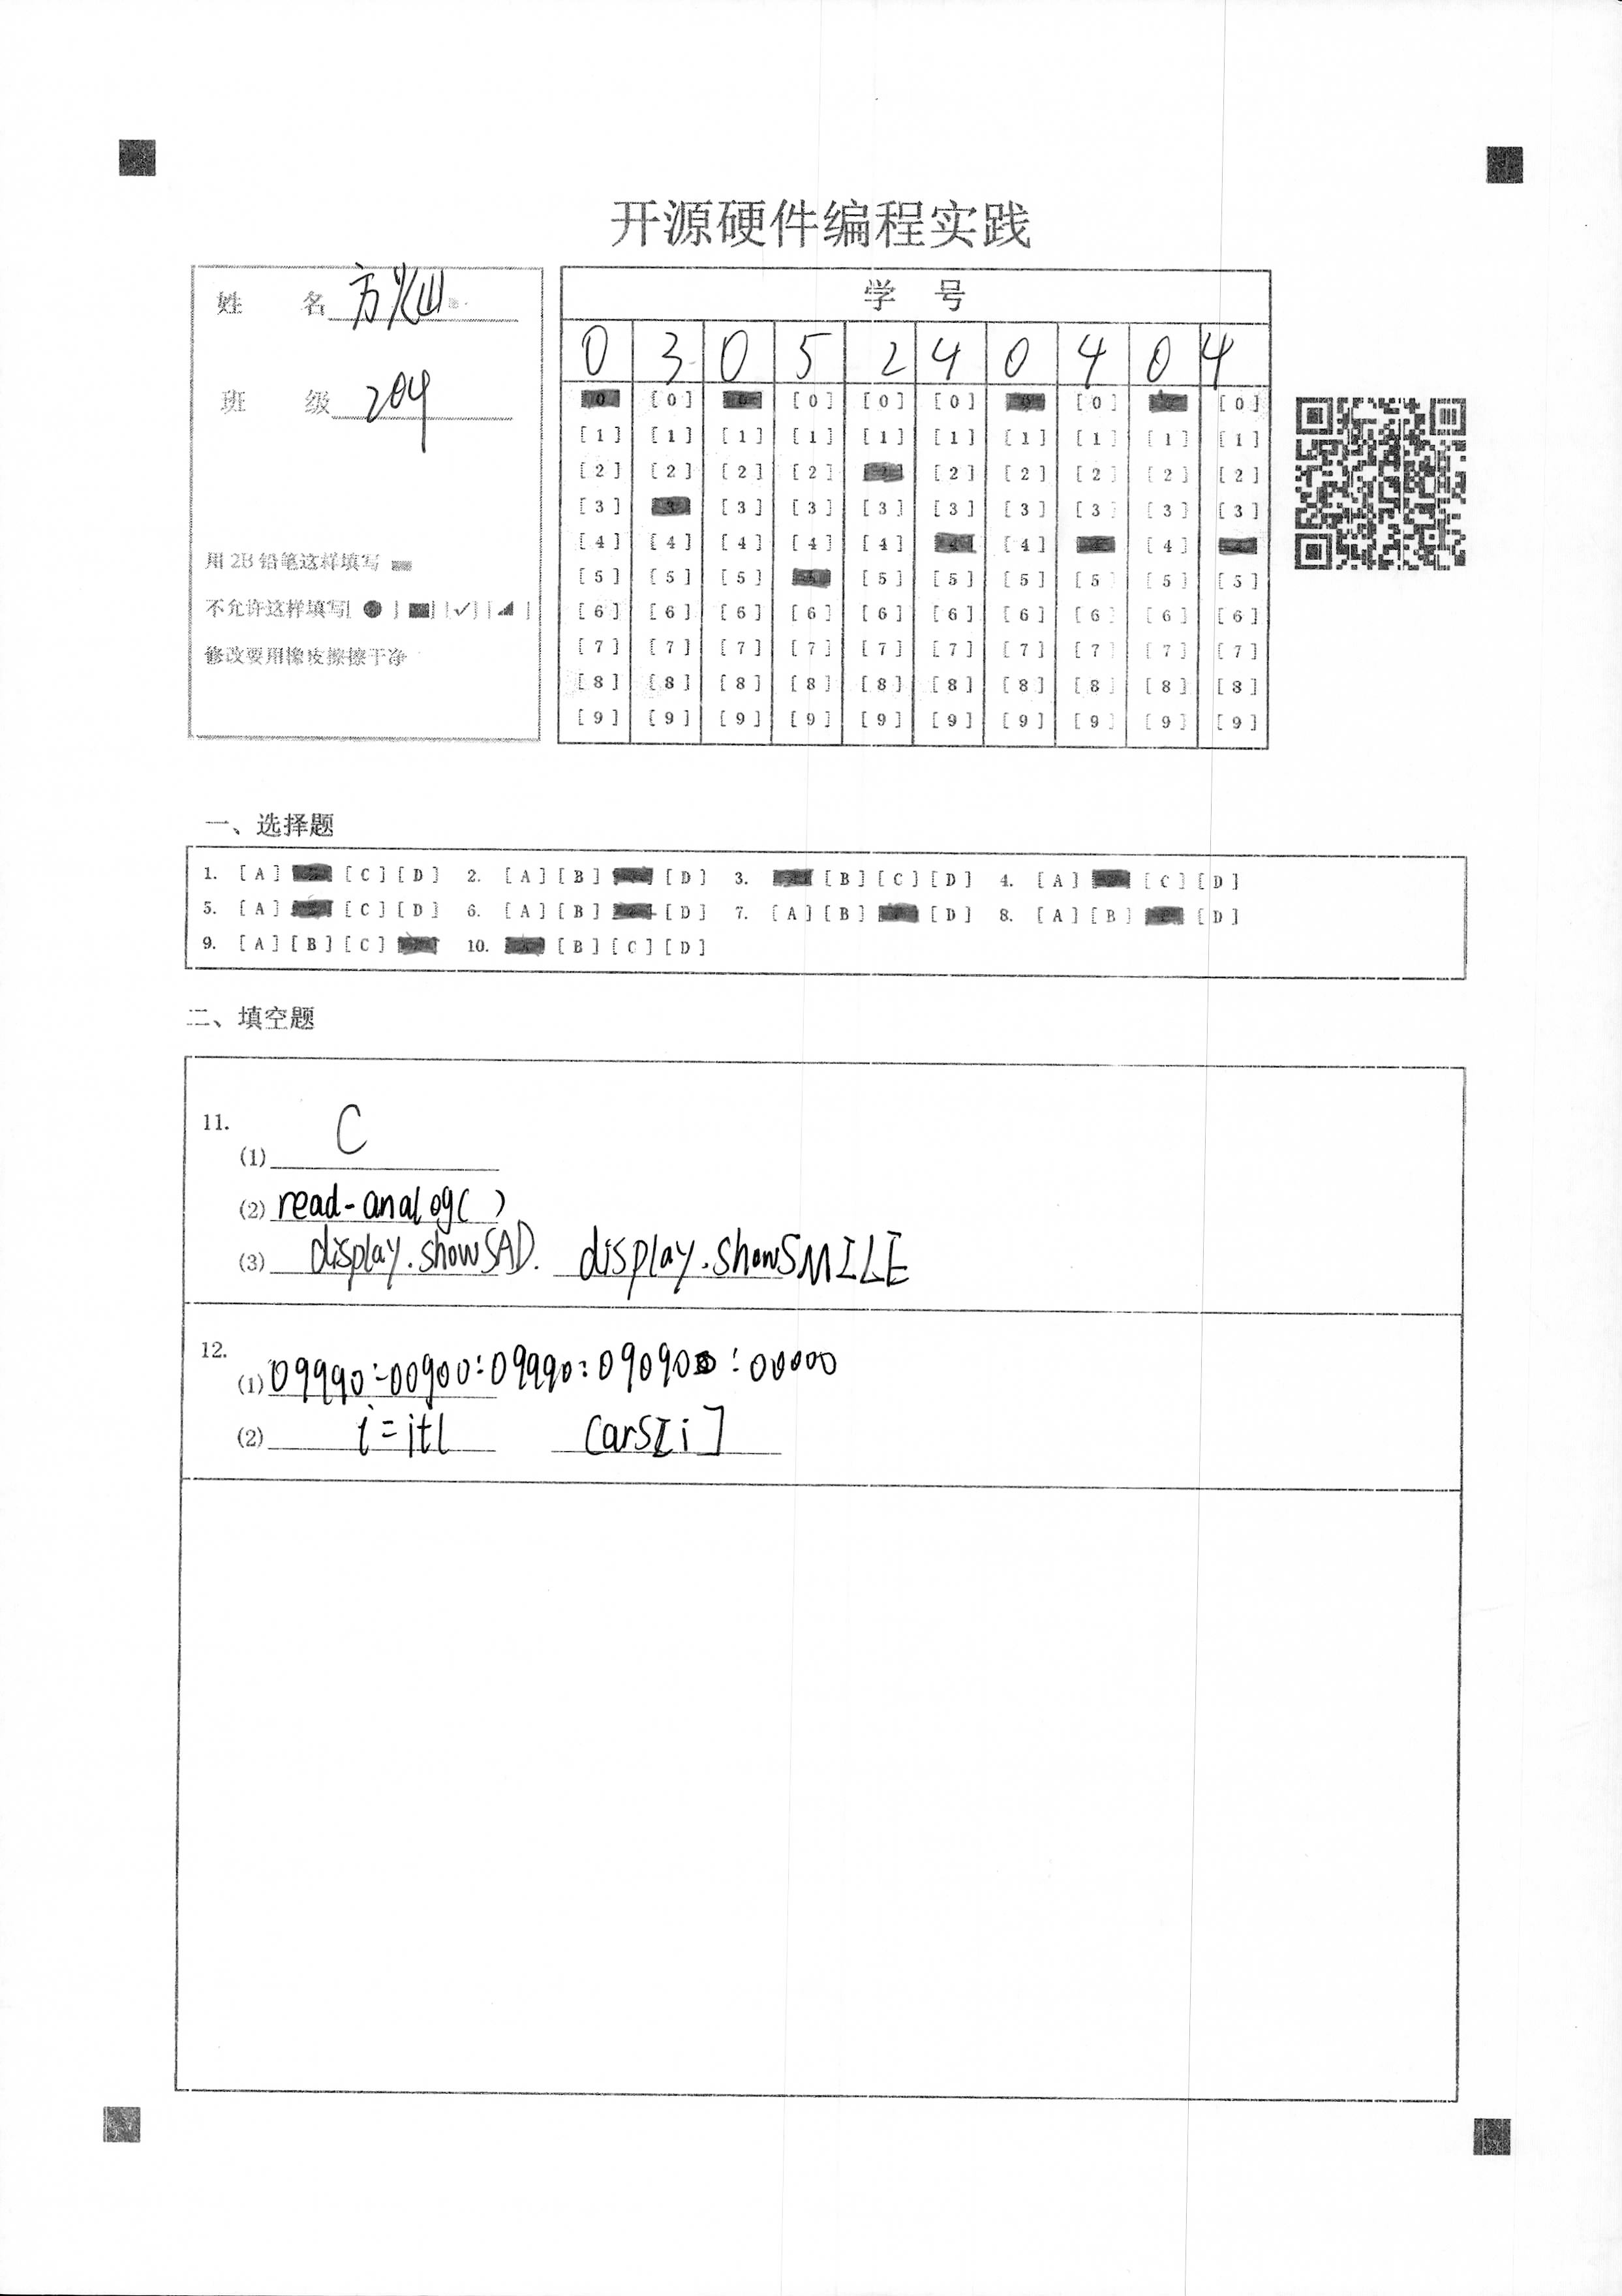 开源硬件编程实践
姓 名 方火山
班 级 204
用 2B 铅笔这样填写
不允许这样填写[ ● ] [■] [✓] [◢ ]
修改要用橡皮擦擦干净
学 号
0 3 0 5 2 4 0 4 0 4
[0] [0] [0] [0] [0] [0]
[1] [1] [1] [1] [1] [1] [1] [1] [1] [1]
[2] [2] [2] [2] [2] [2] [2] [2] [2]
[3] [3] [3] [3] [3] [3] [3] [3] [3]
[4] [4] [4] [4] [4] [4] [4]
[5] [5] [5] [5] [5] [5] [5] [5] [5]
[6] [6] [6] [6] [6] [6] [6] [6] [6] [6]
[7] [7] [7] [7] [7] [7] [7] [7] [7] [7]
[8] [8] [8] [8] [8] [8] [8] [8] [8] [8]
[9] [9] [9] [9] [9] [9] [9] [9] [9] [9]
一、选择题
1. [A] [C] [D] 2. [A] [B] [D] 3. [B] [C] [D] 4. [A] [C] [D]
5. [A] [C] [D] 6. [A] [B] [D] 7. [A] [B] [D] 8. [A] [B] [D]
9. [A] [B] [C] 10. [B] [C] [D]
二、填空题
11.
(1) C
(2) read-analog( )
(3) display.showSAD. display.showSMILE
12.
(1) 09990:00900:09990:09090:00000
(2) i=i+1 cars[i]